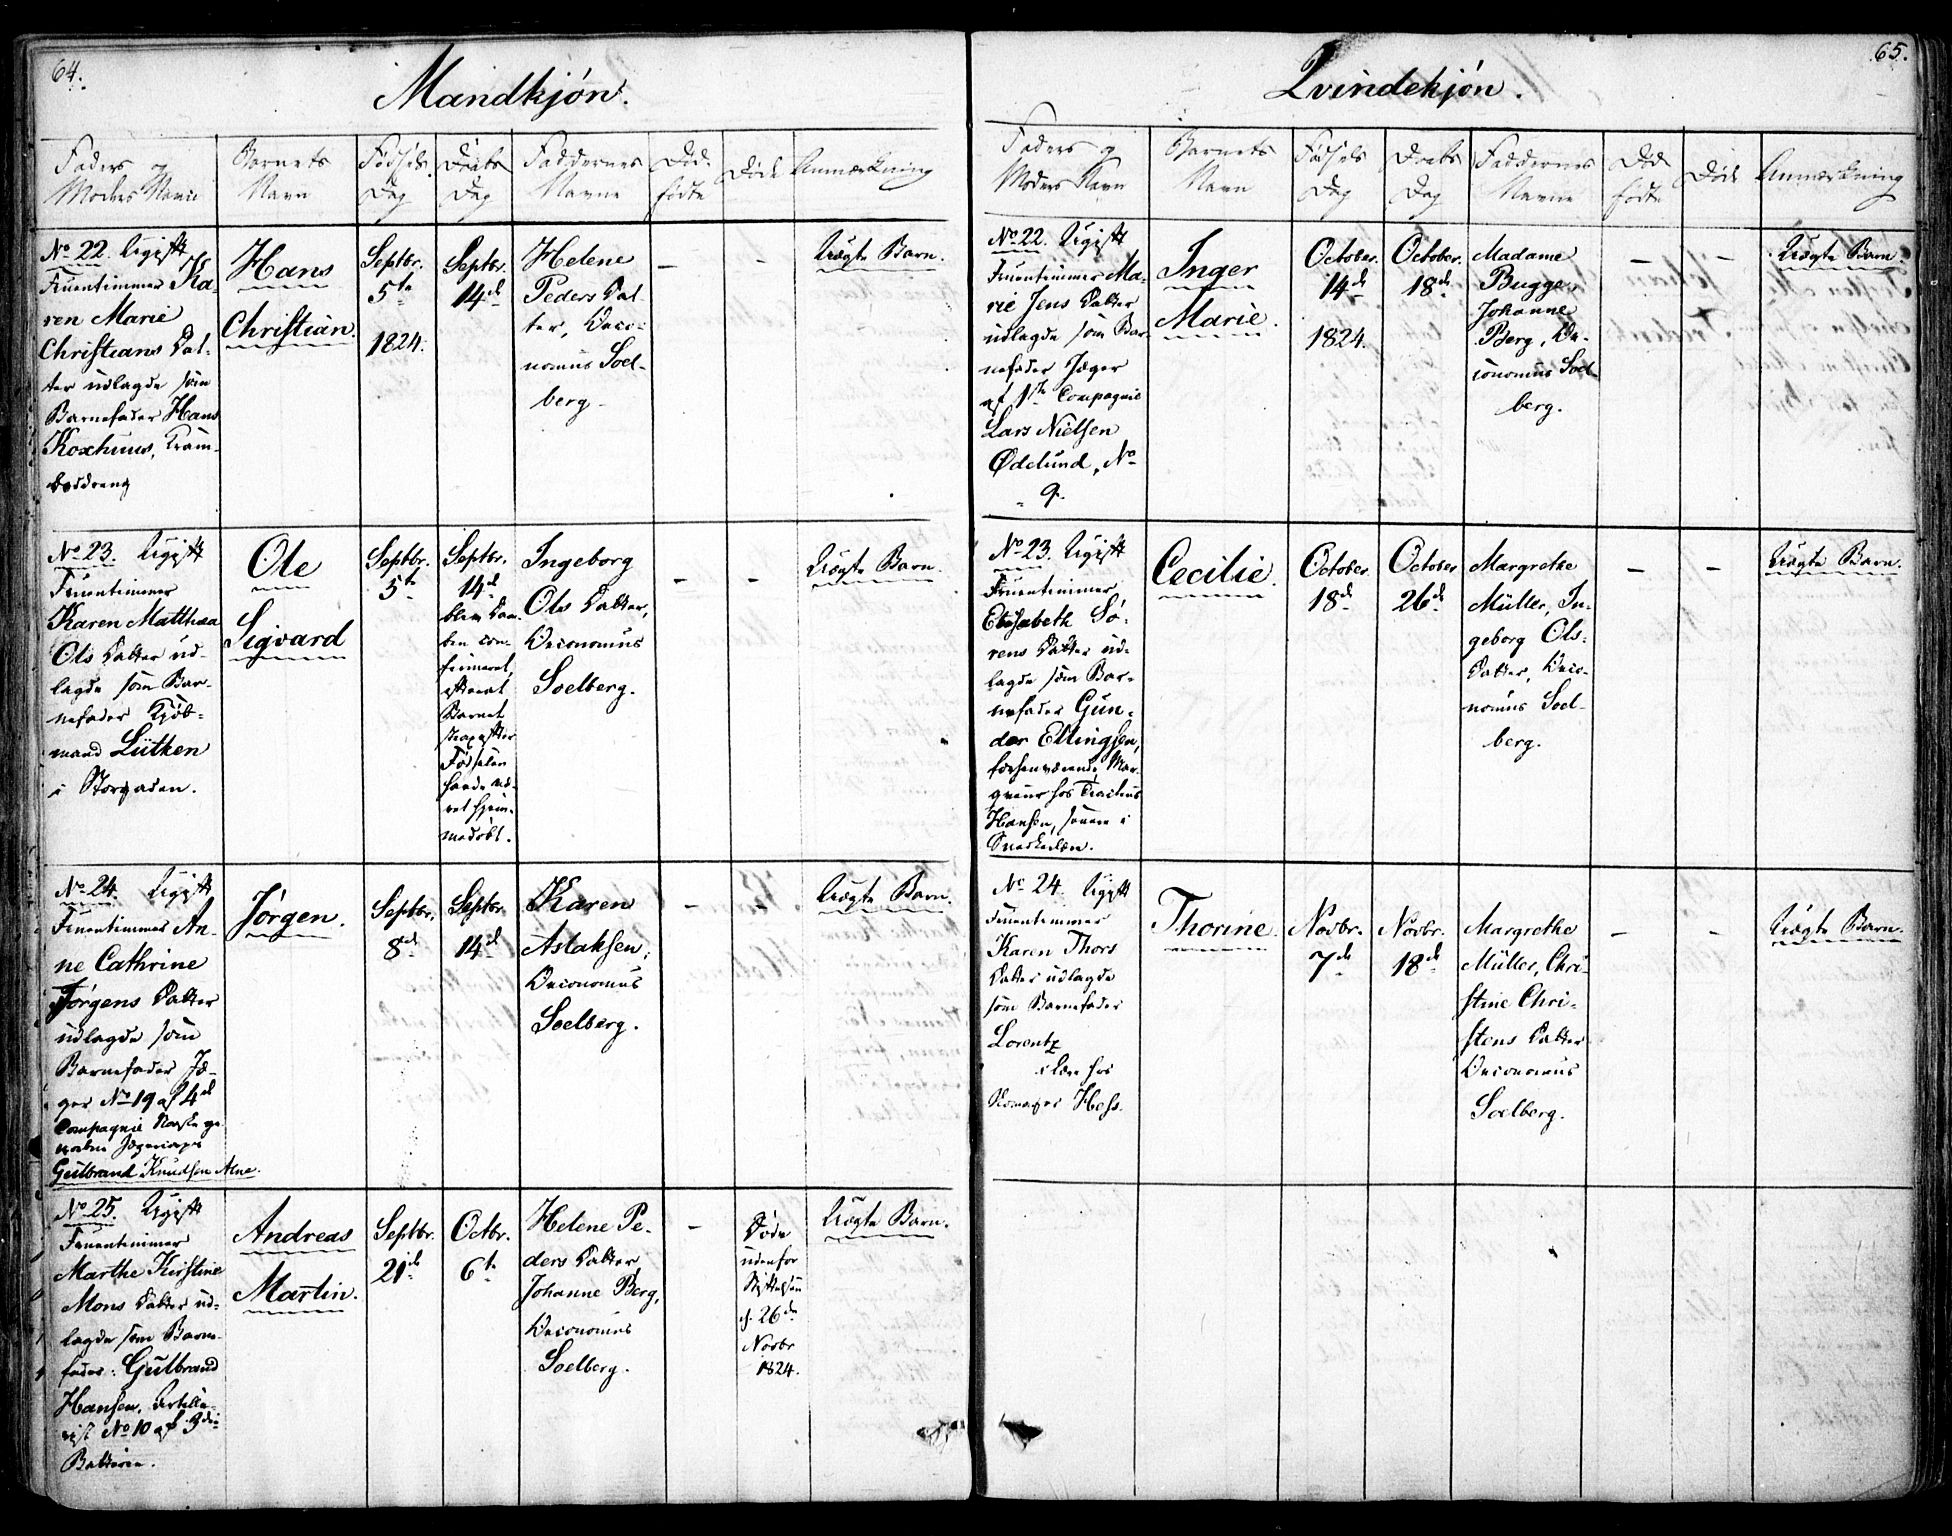 64.
Mandkjøn.
Faders og
Moders Navn
Barnets
Navn
Fødsels
Dag
Daabs
Dag
Faddernes
Navne
Død
fødte
Døde
Anmærkning
No 22. Ugift
Fruentimmer Ka-
ren Marie
Christians Dat-
ter udlagde som
Barnefader Hans
Koxhuus, Kram-
boddreng
Hans
Christian.
Septbr.
5te
1824.
Septbr.
14de
Helene
Peders Dat-
ter, Oeco-
nomus Soel-
berg.
–
–
Uægte Barn.
No 23. Ugift
Fruentimmer
Karen Matthæa
Ols Datter ud-
lagde som Bar-
nefader Kjøb-
mand Lütken
i Storgaden.
Ole
Sigvard
Septbr.
5te
Septbr.
14de
blev Daa-
ben con-
firmeret,
efterat
Barnet
strax efter
Fødselen
havde væ-
ret hjem-
medøbt.
Ingeborg
Ols Datter,
Oeconomus
Soelberg.
–
–
Uægte Barn.
No 24. Ugift
Fruentimmer An-
ne Cathrine
Jørgens Datter
udlagde som
Barnefader Jæ-
ger No 19 af 4de
Compagnie Norske ge-
Jægercorps
Gulbrand Knudsen Alne.
Jørgen.
Septbr.
8de
Septbr.
14de
Karen
Aslaksen,
Oeconomus
Soelberg.
–
–
Uægte Barn.
No 25. Ugift
Fruentimmer
Marthe Kirstine
Mons Datter ud-
lagde som Barne-
fader: Gulbrand
Hansen, Artille-
rist No 10 af 3die
Batterie.
Andreas
Martin.
Septbr.
21de
Octbr.
6te
Helene Pe-
ders Datter,
Johanne Berg,
Oeconomus
Soelberg.
–
Døde
udenfor
Stiftelsen
d. 26de
Novbr
1824.
Uægte Barn.
65.
Qvindekjøn.
Faders og
Moders Navn
Barnets
Navn
Fødsels
Dag
Daabs
Dag
Faddernes
Navne
Død
fødte
Døde
Anmærkning
No 22. Ugift
Fruentimmer Ma-
rie Jens Datter
udlagde som Bar-
nefader Jæger
af 1ste Compagnie
Lars Nielsen
Ødelund, No
9.
Inger
Marie.
October
14de
1824.
October.
18de
Madame
Bugge,
Johanne
Berg, Oe-
conomus Soel-
berg.
–
–
Uægte Barn
No 23. Ugift
Fruentimmer,
Elisabeth Sø-
rens Datter ud-
lagde som Bar-
nefader Gun-
der Ellingsen,
forhenværende
hos
Hansen, i
Snedkerlære.
Cecilie.
October
18de
October
26de
Margrethe
Müller, In-
geborg Ols-
Datter, Oeco-
nomus Soel-
berg.
–
–
Uægte Barn.
No 24. Ugift
Fruentimmer
Karen Thors
Datter udlagde
som Barnefader
Lorentz
i Lære hos
Skomager Hess.
Thorine.
Novbr.
7de
Novbr.
18de
Margrethe
Müller, Chri-
stine Chri-
stens Datter
Oeconomus
Soelberg.
–
–
Uægte Barn.